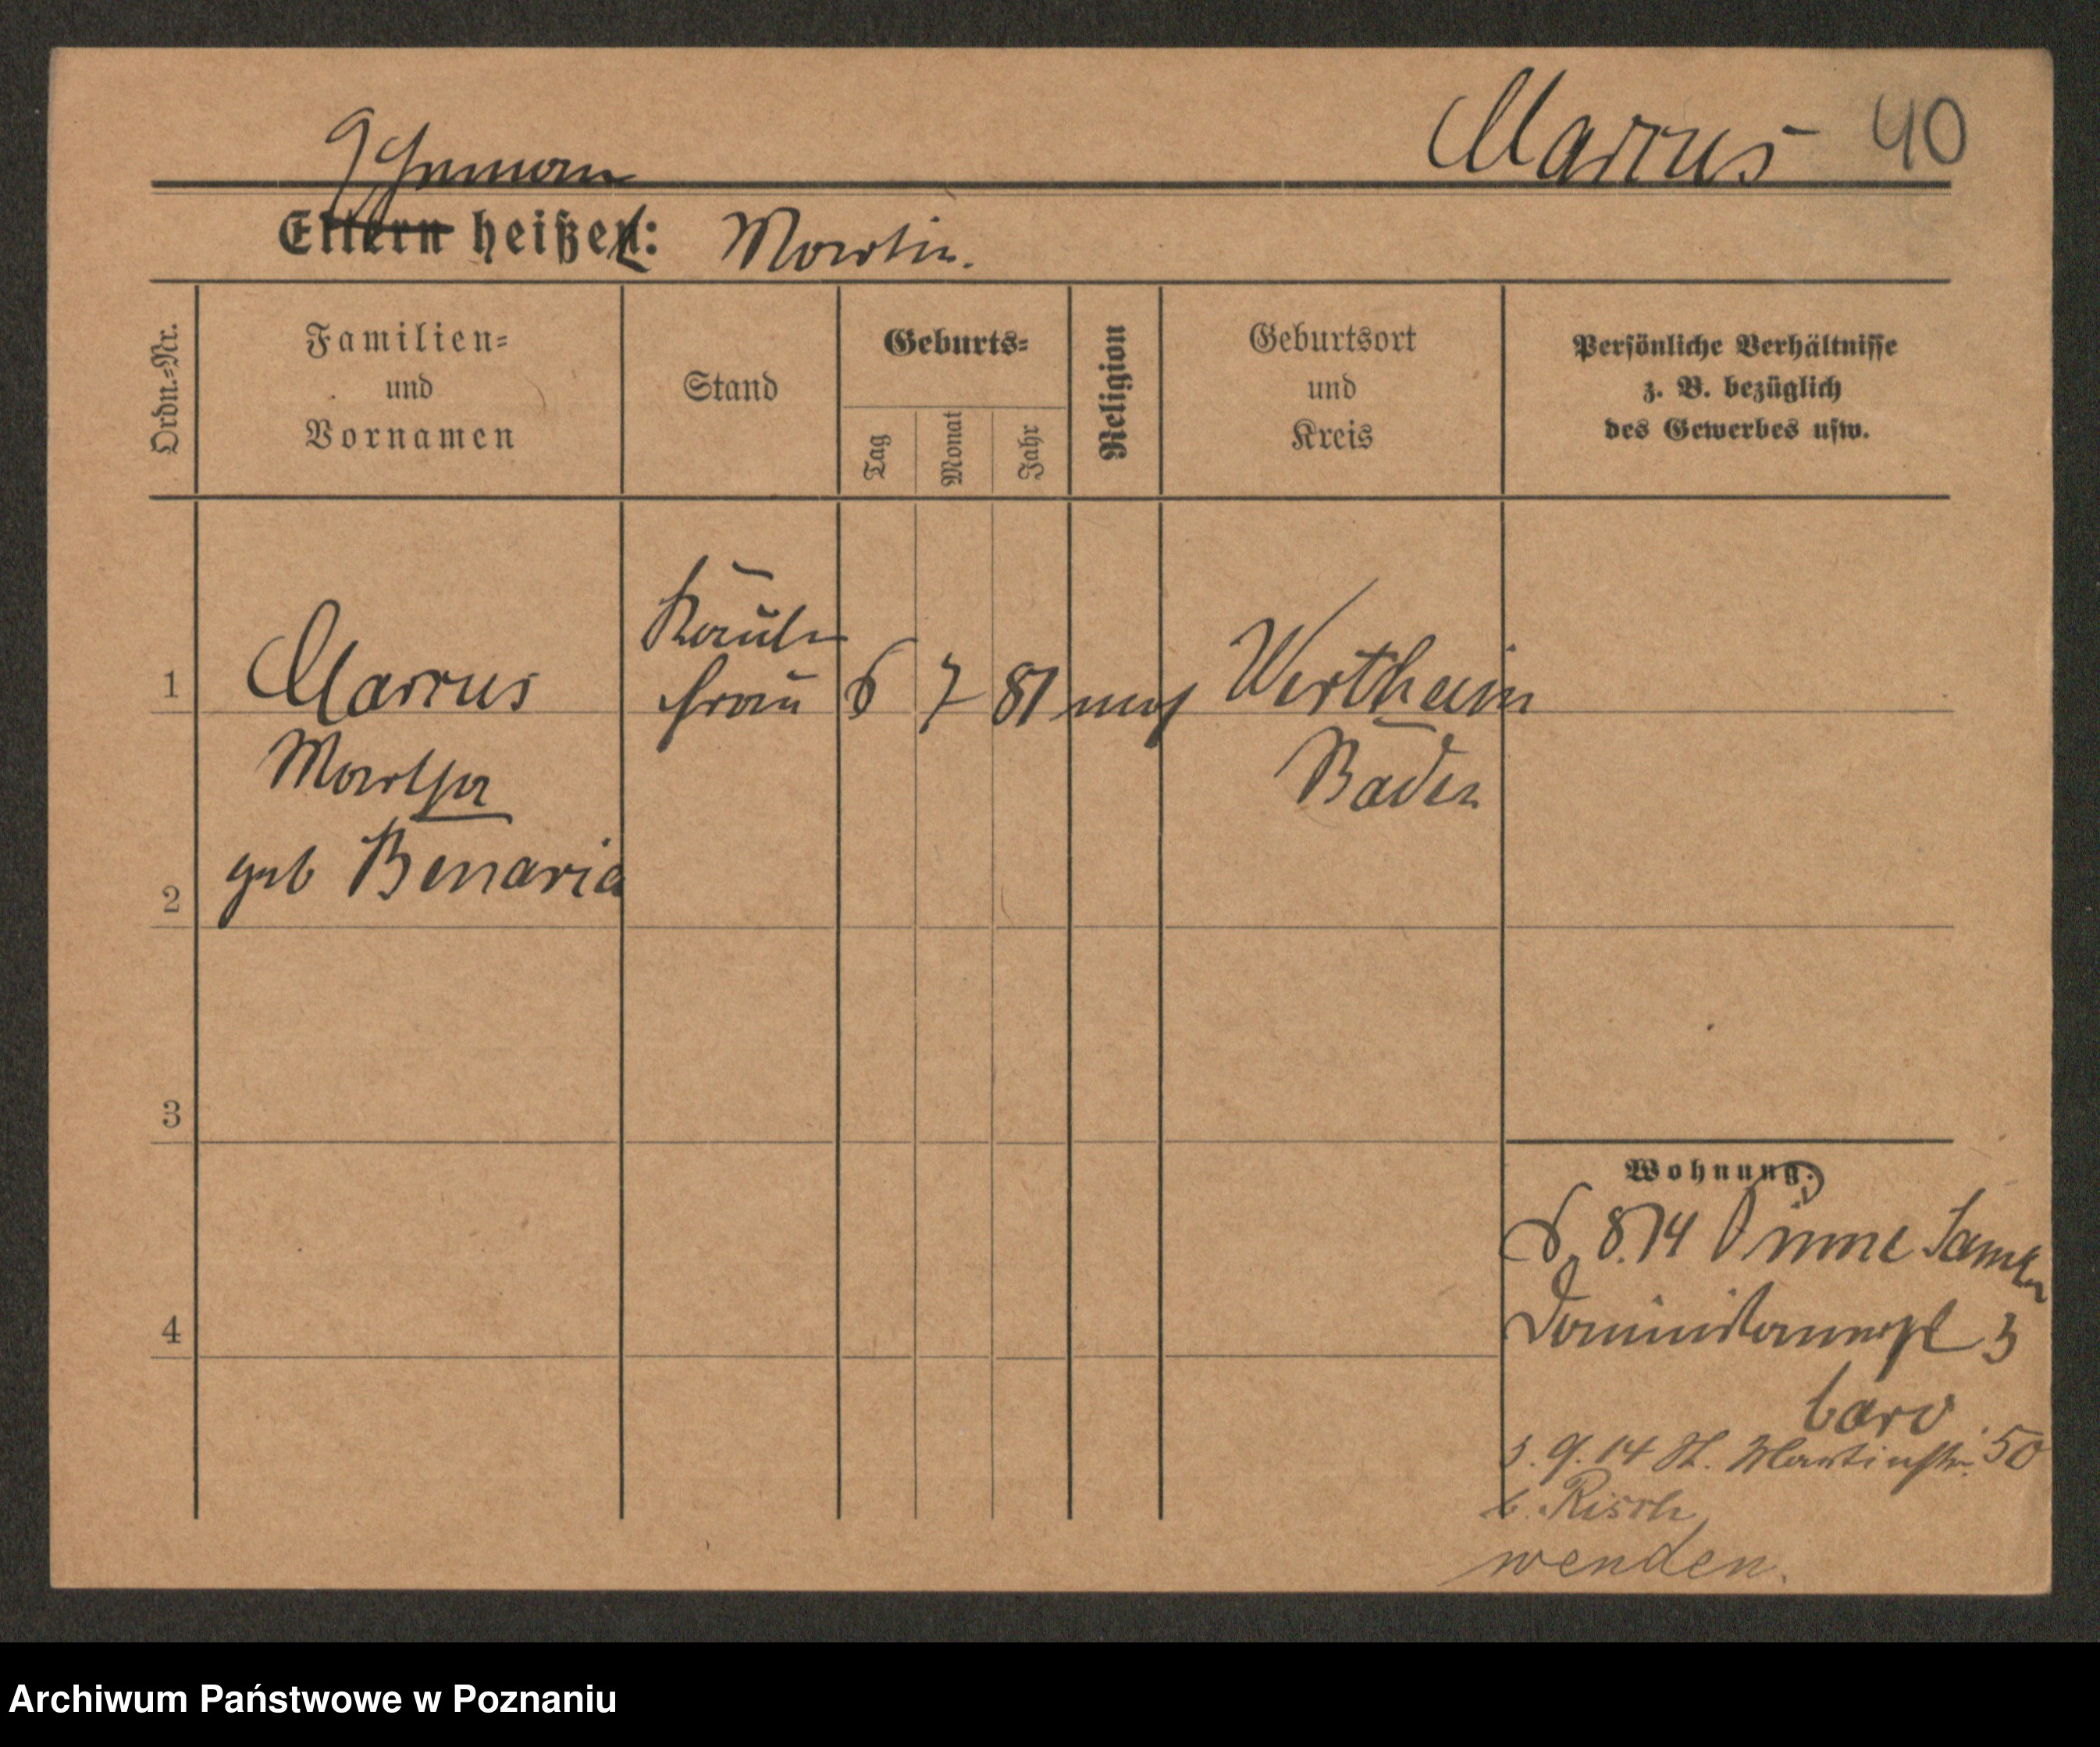 Marcus 40
Ehemann
Eltern heißen: Martin.
Ordn.=Nr.
Familien=
und
Vornamen
Stand
Geburts=
Tag
Monat
Jahr
Religion
Geburtsort
und
Kreis
Persönliche Verhältnisse
z. B. bezüglich
des Gewerbes usw.
1 Marcus Kaufm frau 6 7 81 mos Wertheim
Martha Baden
2 geb Benaria
3
4
Wohnung:
6. 8. 14 Pinne Samter
3
3. 9. 14 St. Martinstr. 50
b. Risch
wenden.
Archiwum Państwowe w Poznaniu